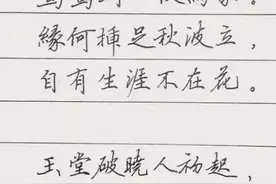 緣何插足秋波立，
自有生涯不在花。
玉堂破曉人初起，